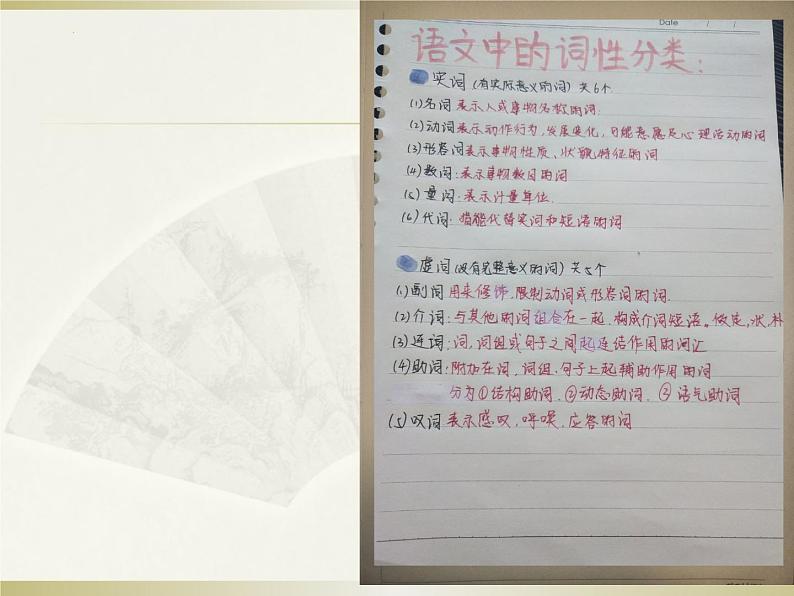 Date / /
语文中的词性分类:
一、实词(有实际意义的词)共6个
(1)名词 表示人或事物名称的词.
(2)动词 表示动作行为,发展变化,可能意愿及心理活动的词
(3)形容词表示事物性质、状貌特征的词
(4)数词:表示事物数目的词
(5)量词:表示计量单位.
(6)代词:指能代替实词和短语的词
二、虚词(没有完整意义的词)共5个
(1)副词 用来修饰,限制动词或形容词的词.
(2)介词:与其他的词组合在一起,构成介词短语。做定,状,补
(3)连词:词,词组或句子之间起连结作用的词汇
(4)助词:附加在词,词组,句子上起辅助作用的词
分为①结构助词,②动态助词,③语气助词
(5)叹词 表示感叹,呼唤,应答的词